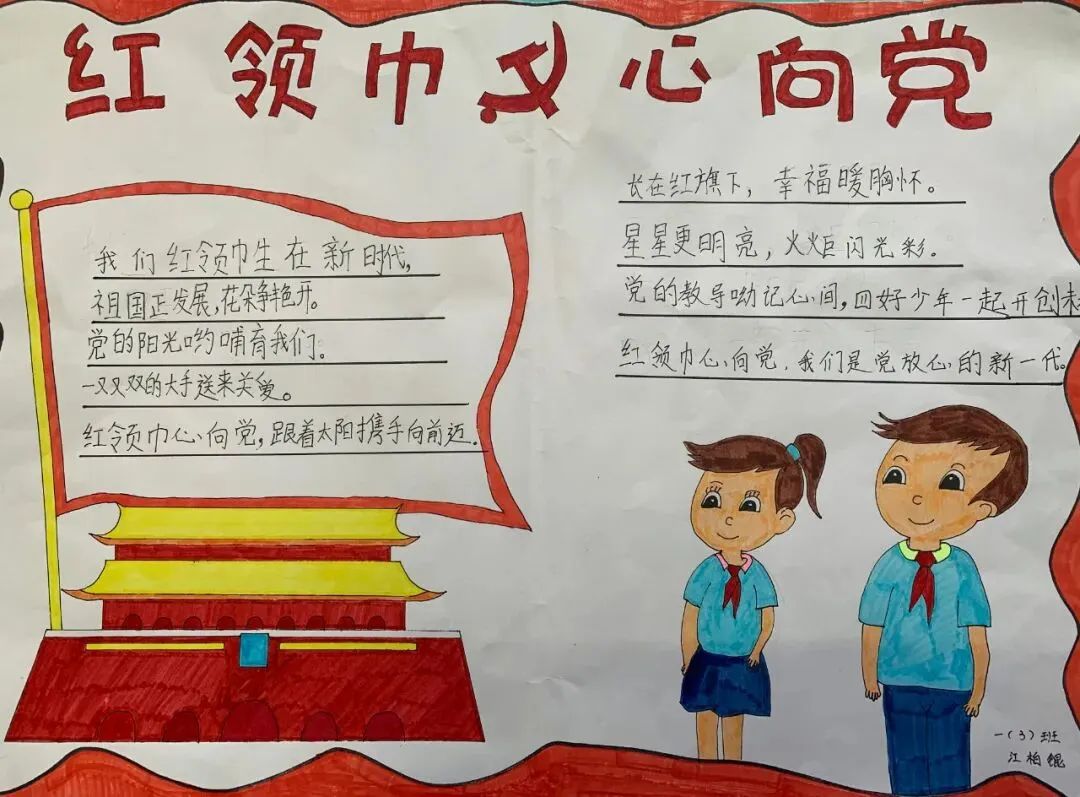 红领巾心向党
我们红领巾生在新时代,
祖国正发展,花朵争艳开。
党的阳光哟哺育我们。
一双双的大手送来关爱。
红领巾心向党,跟着太阳携手向前迈.
长在红旗下，幸福暖胸怀。
星星更明亮，火炬闪光彩。
党的教导呦记心间，四好少年一起开创未
红领巾心向党，我们是党放心的新一代。
一(3)班
江柏锟